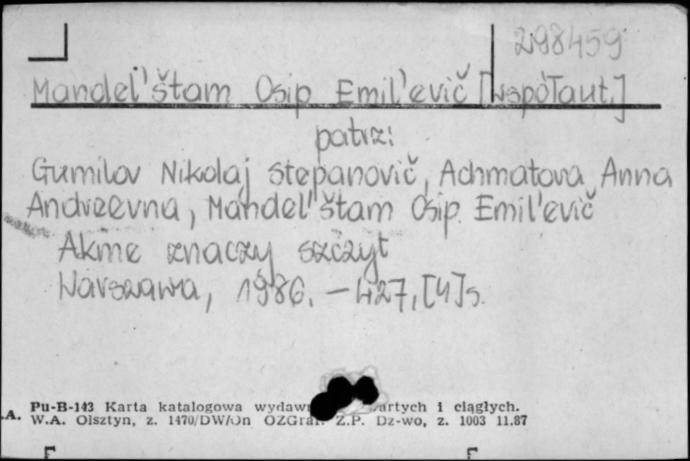 298459
Mandel'štam Osip Emil'evič [współaut.]
patrz:
Gumilov Nikolaj Stepanovič, Achmatova Anna
Andreevna, Mandel'štam Osip Emil'evič
Akme znaczy szczyt
Warszawa, 1986. – 427, [4] s.
Pu-B-143 Karta katalogowa artych i ciągłych.
.A. W.A. Olsztyn, z. 1470/DW/On OZGraf. Z.P. Dz-wo, z. 1003 11.87